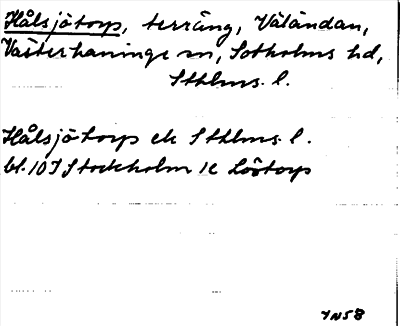 Hålsjötorp, terräng, Väländan,
Västerhaninge sn, Sotholms hd,
Sthlms. l.
Hålsjötorp ek Sthlms. l.
bl. 10 I Stockholm 1c Löstorp
YN58